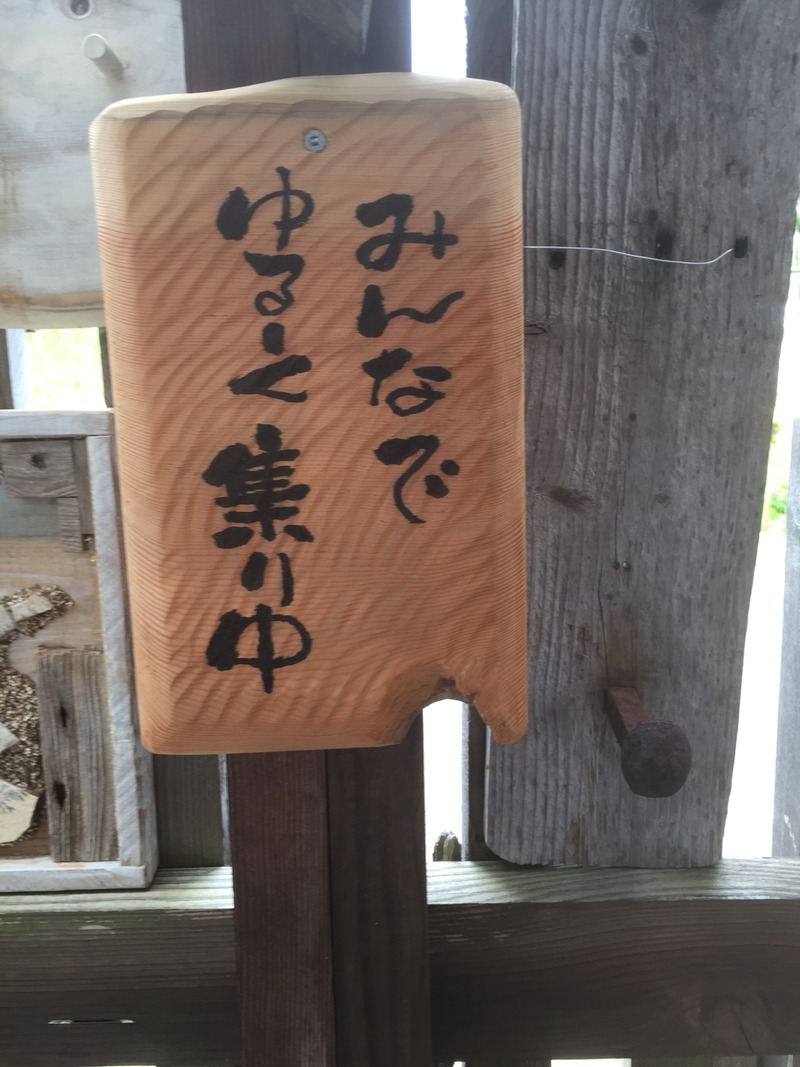 みんなで
ゆるっと集り中